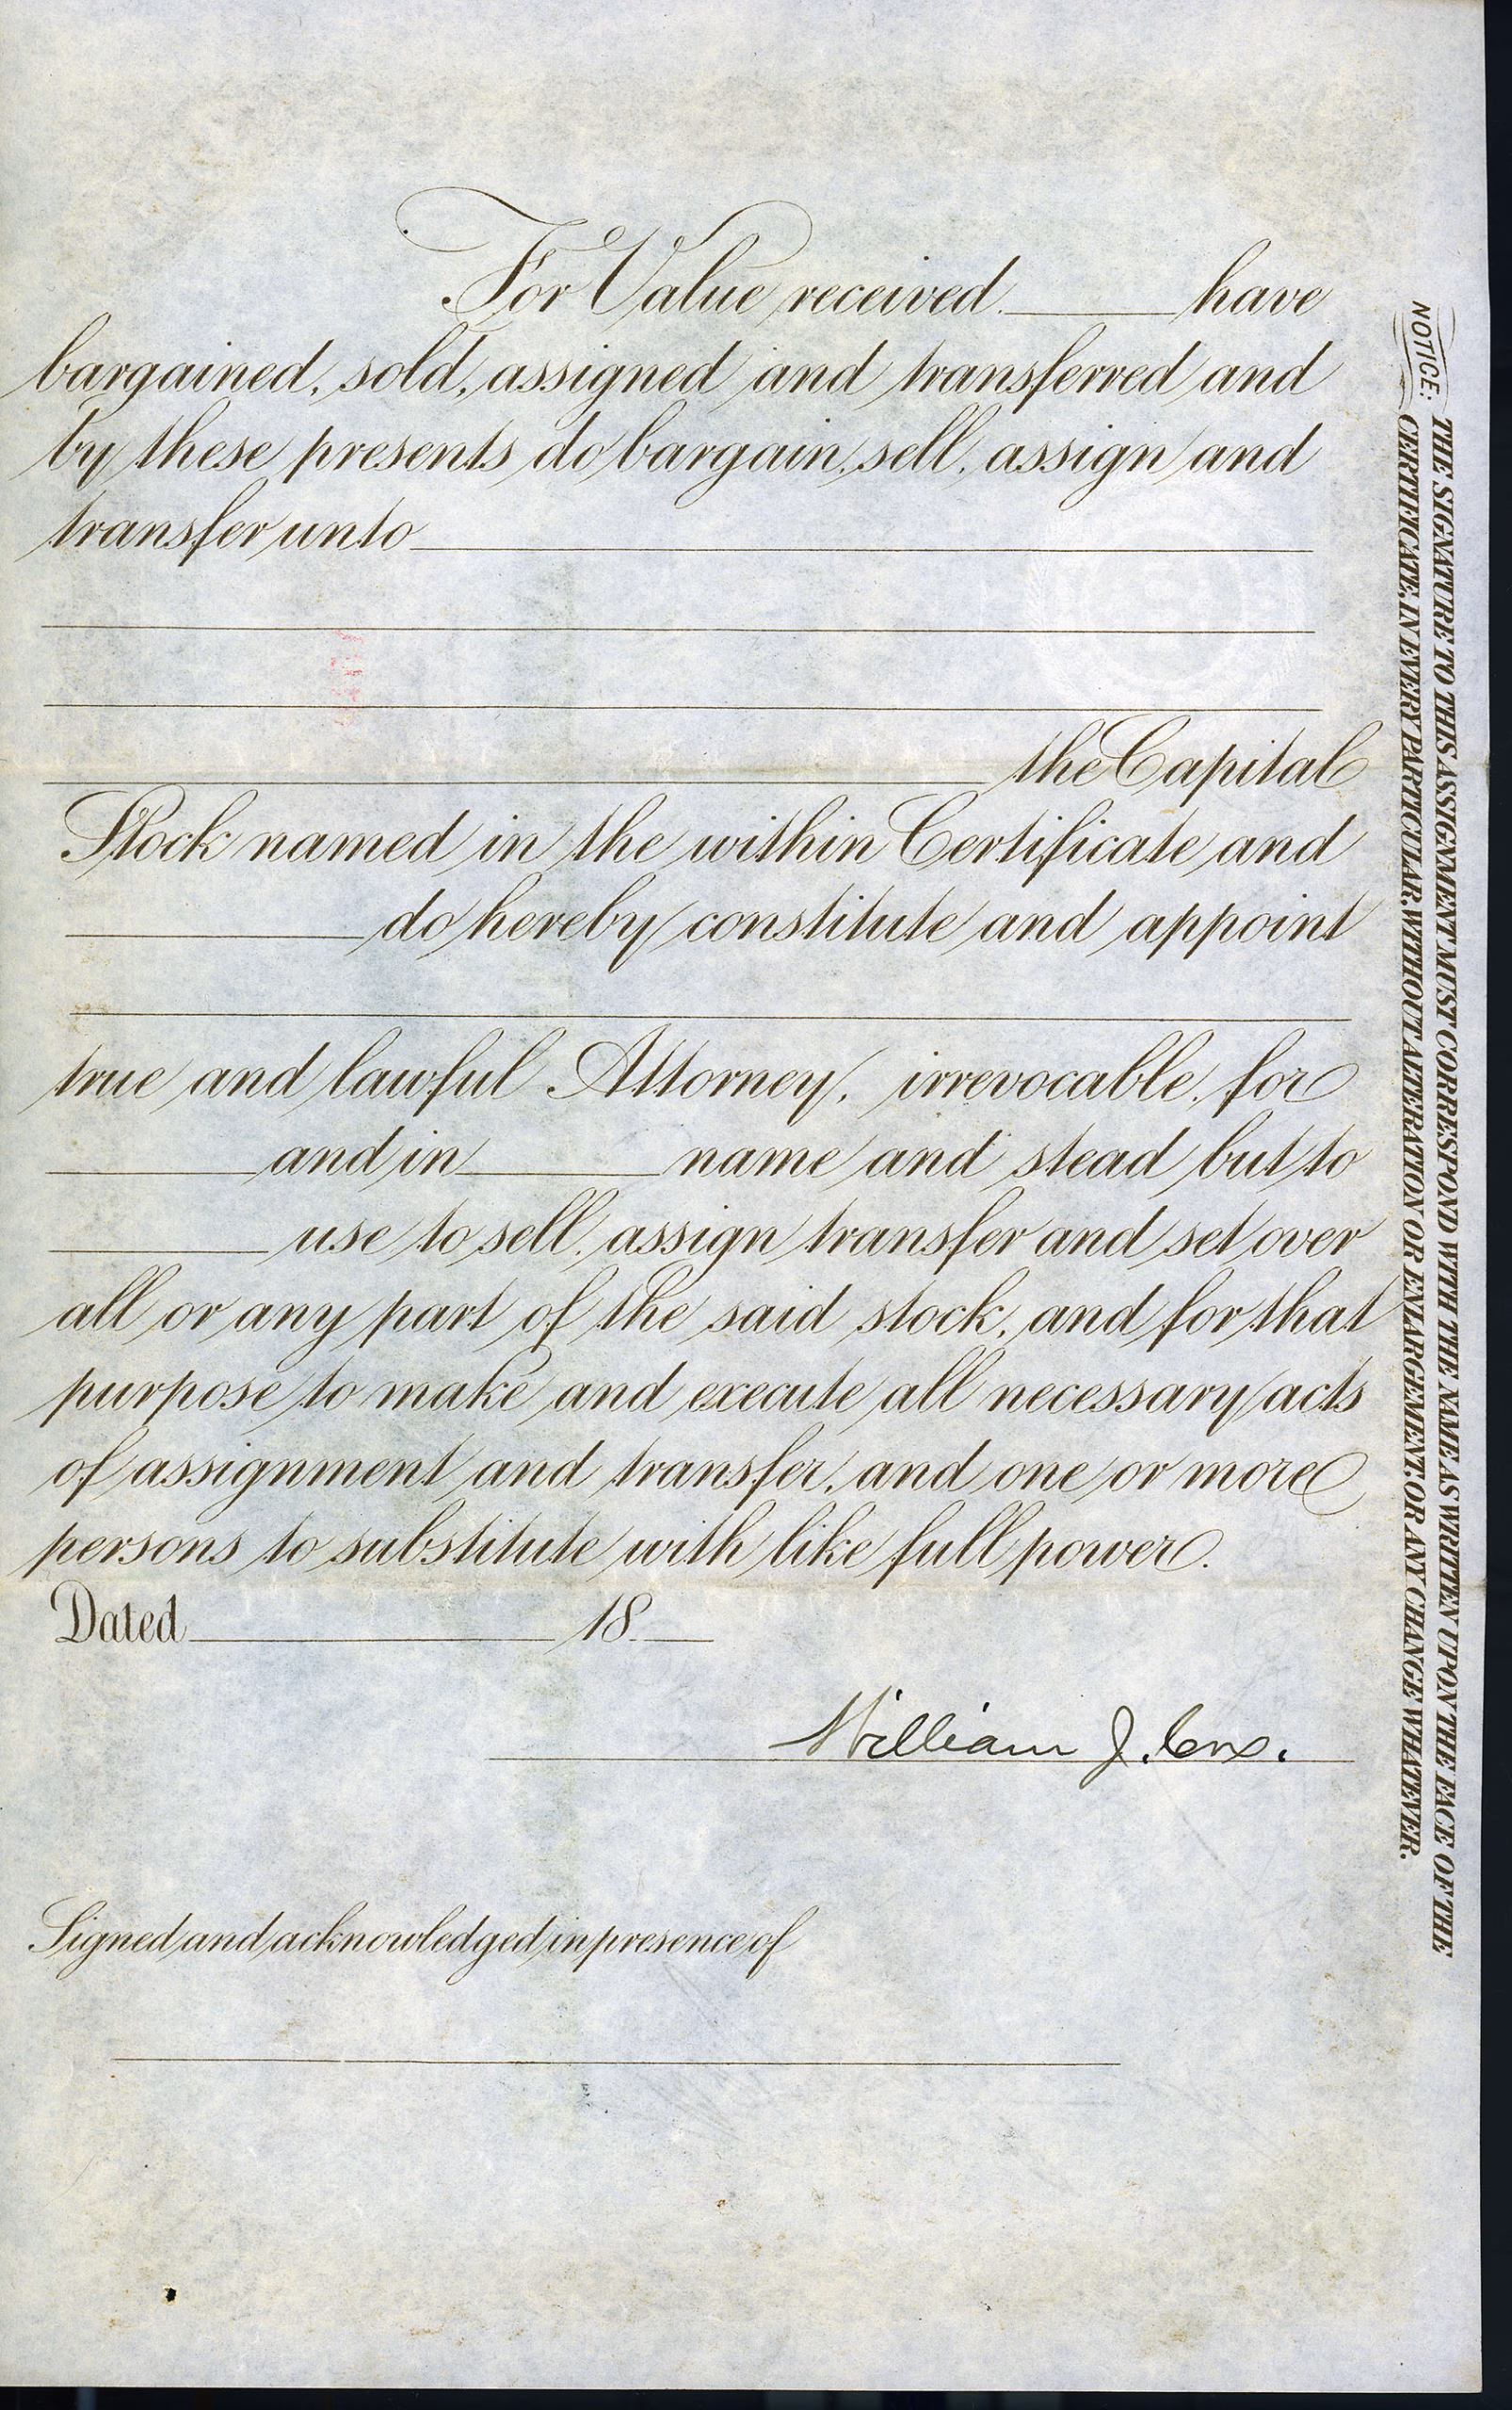 For Value received. have
bargained, sold, assigned and transferred and
by these presents do bargain, sell, assign and
transfer unto
the Capital
Stock named in the within Certificate and
do hereby constitute and appoint
true and lawful Attorney, irrevocable, for
and in name and stead but to
use to sell, assign transfer and set over
all or any part of the said stock, and for that
purpose to make and execute all necessary acts
of assignment and transfer, and one or more
persons to substitute with like full power.
Dated 18
William J. Cox.
Signed and acknowledged in presence of
NOTICE:
THE SIGNATURE TO THIS ASSIGNMENT MUST CORRESPOND WITH THE NAME AS WRITTEN UPON THE FACE OF THE
CERTIFICATE, IN EVERY PARTICULAR, WITHOUT ALTERATION OR ENLARGEMENT, OR ANY CHANGE WHATEVER.